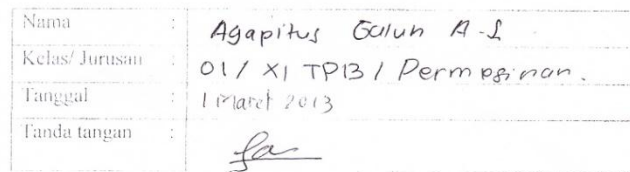 Nama : Agapitus Galuh A.S
Kelas/ Jurusan : 01 / XI TPB / Permesinan.
Tanggal : 1 Maret 2013
Tanda tangan :